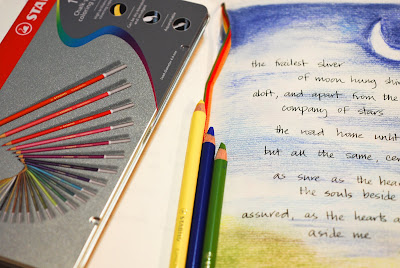 STA
the frailest sliver
of moon hung shin
aloft, and apart from the
company of stars
the road home unlit
but all the same, cer
as sure as the hea
the souls beside
assured, as the hearts a
aside me